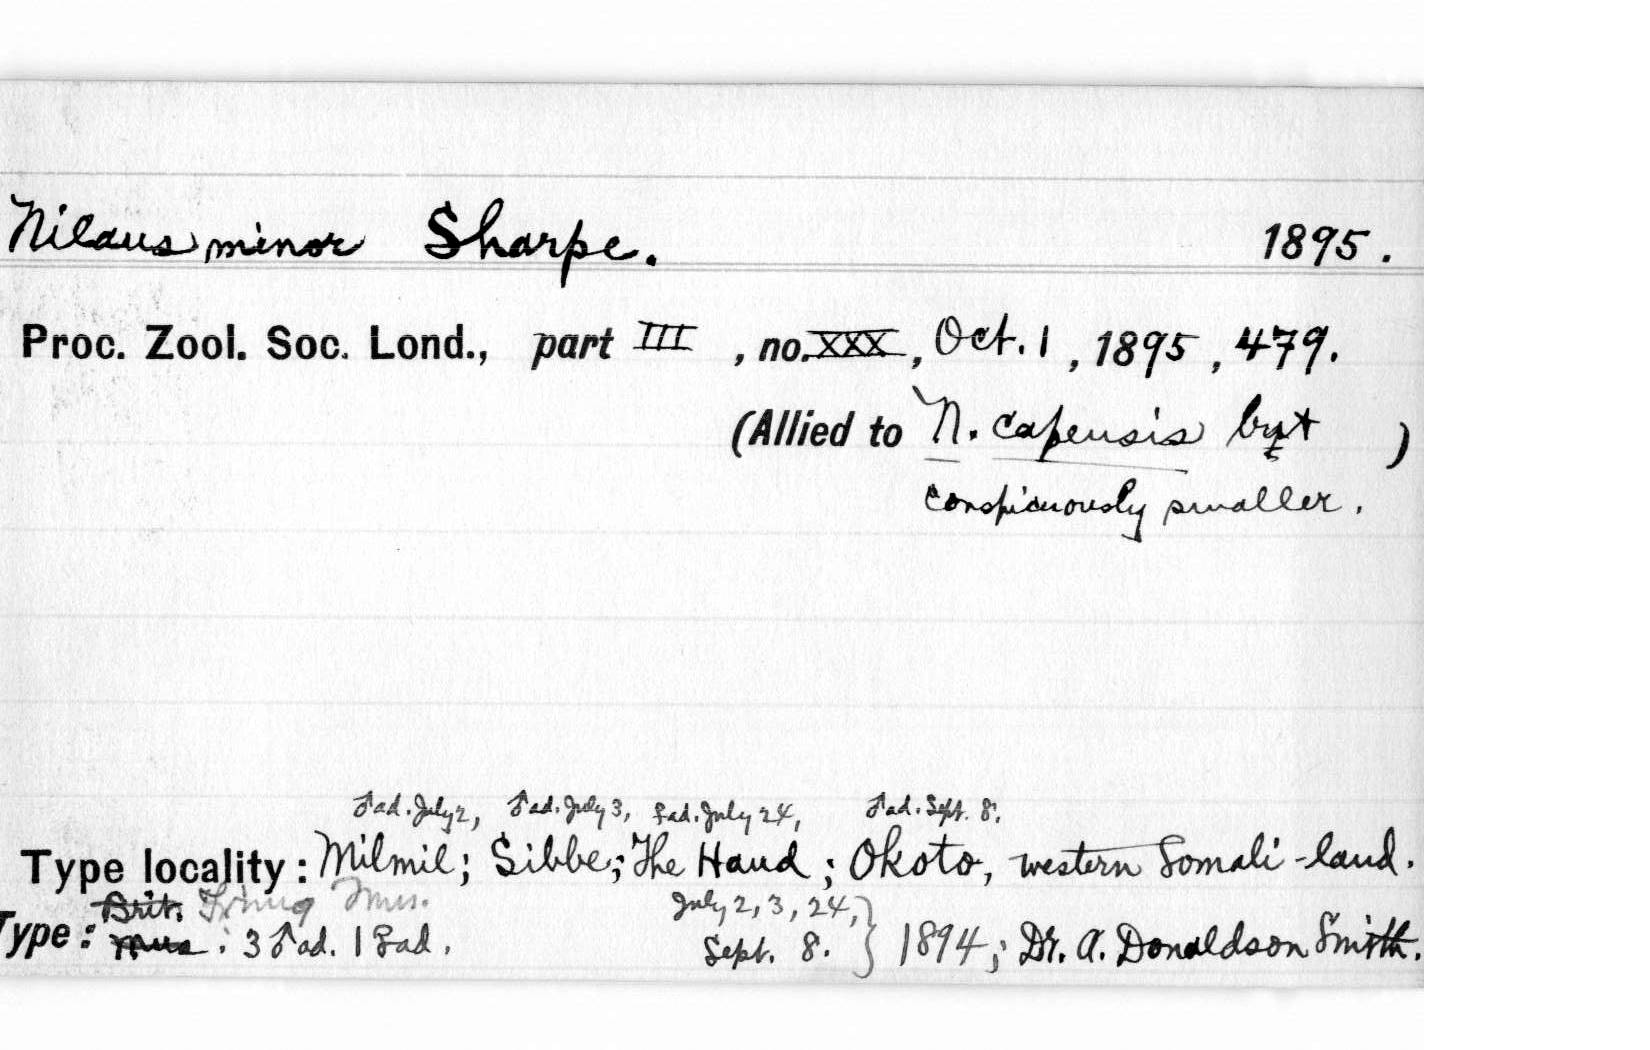 Nilaus minor Sharpe. 1895.
Proc. Zool. Soc. Lond., part III, no. XXX, Oct. 1, 1895, 479.
(Allied to N. capensis but)
conspicuously smaller.
♂ad. July 2, ♂ad. July 3, ♀ad. July 24, ♂ad. Sept. 8.
Type locality: Milmil; Sibbe; The Haud; Okoto, western Somali-land.
Brit. Mus. July 2, 3, 24,
Type: Mus. : 3 ♂ad. 1 ♀ad. Sept. 8. } 1894; Dr. A. Donaldson Smith.